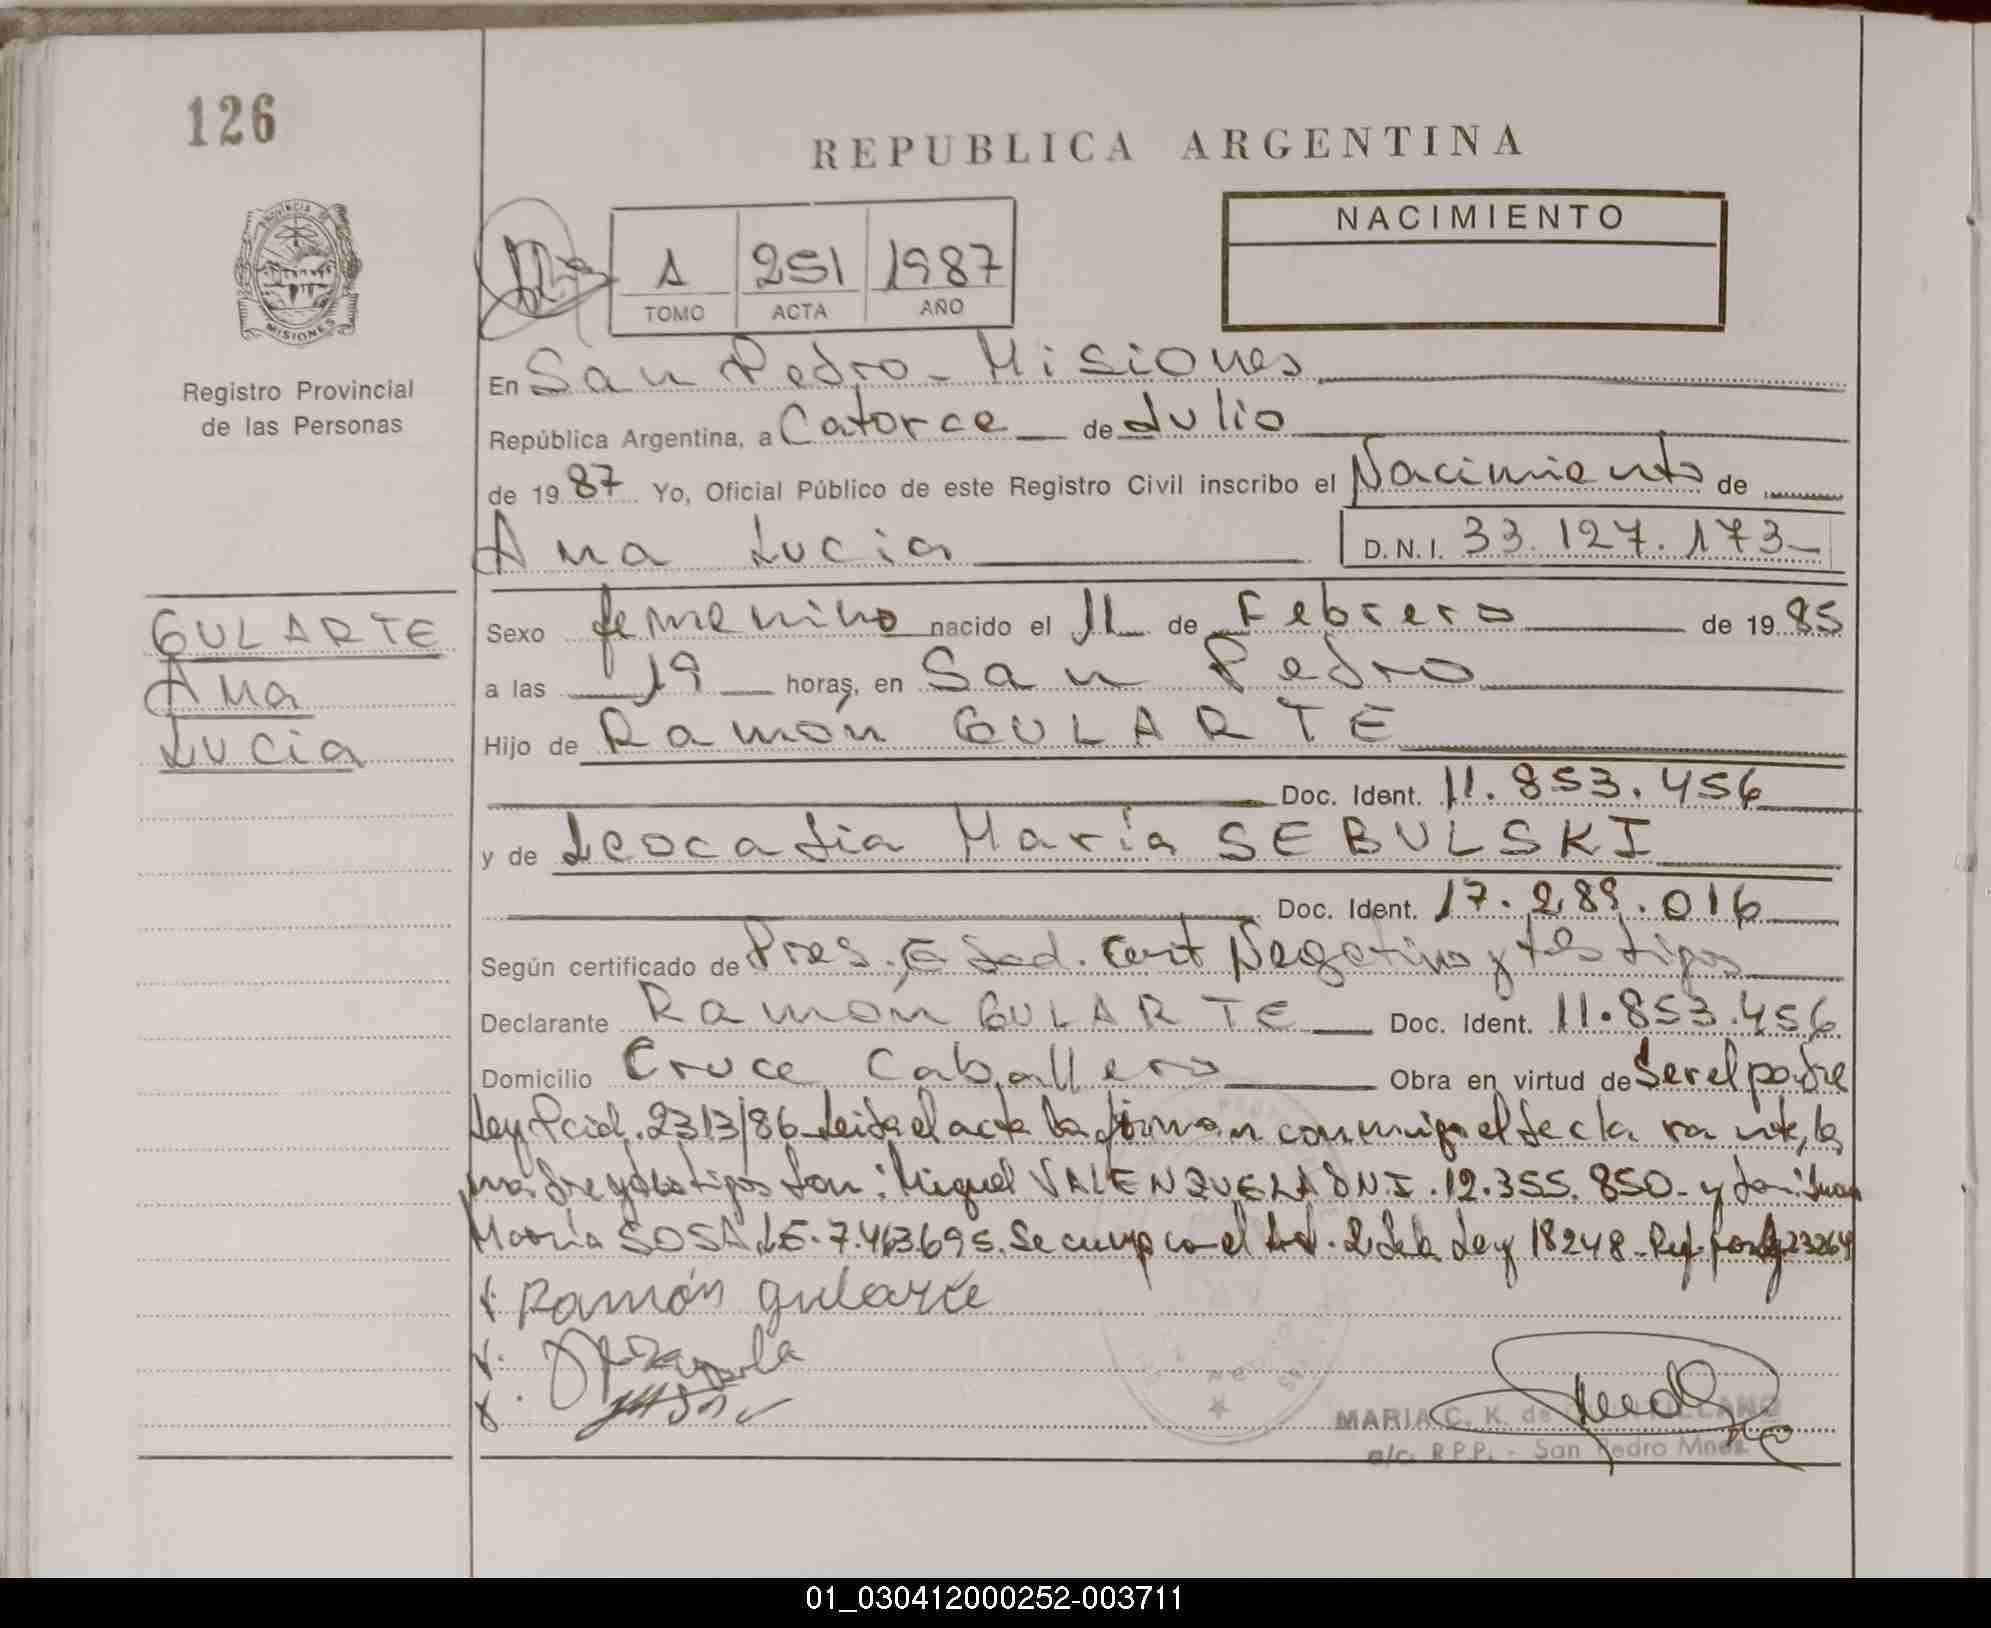 126
REPUBLICA ARGENTINA
NACIMIENTO
A 251 1987
TOMO ACTA AÑO
PROVINCIA DE
MISIONES
Registro Provincial
de las Personas
En San Pedro - Misiones
República Argentina, a Catorce de Julio
de 1987 Yo, Oficial Público de este Registro Civil inscribo el Nacimiento de
Ana Lucia D.N.I. 33.127.173-
GULARTE
Ana
Lucia
Sexo femenino nacido el 11 de Febrero de 1985
a las 19 horas, en San Pedro
Hijo de Ramón GULARTE
Doc. Ident. 11.853.456
y de Leocadia María SEBULSKI
Doc. Ident. 17.289.016
Según certificado de Pres. E Sad. Cert Negativo y testigos
Declarante Ramón GULARTE Doc. Ident. 11.853.456
Domicilio Cruce Caballero Obra en virtud de Ser el padre
Ley Pcial. 2313/86 Leida el acta la firman conmigo el declarante, la
madre y dos testigos Don: Miguel VALENZUELA DNI. 12.355.850- y Don: Juan
María SOSA LE. 7.463.695. Se cumpio el Art. 2 de la Ley 18248- Ref. por Ley 23264
x Ramón gularte
MARIA C. K. de
a/c. R.P.P. - San Pedro Mnes
01_030412000252-003711